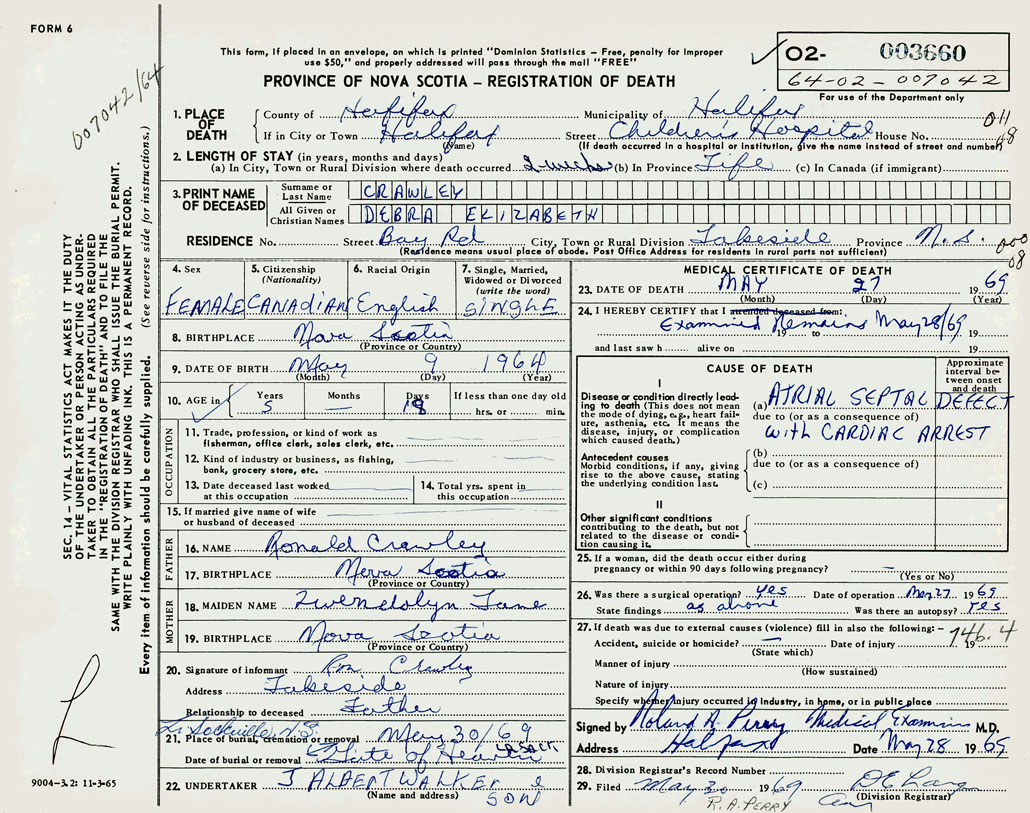 FORM 6
This form, if placed in an envelope, on which is printed "Dominion Statistics – Free, penalty for improper
use $50," and properly addressed will pass through the mail "FREE"
PROVINCE OF NOVA SCOTIA – REGISTRATION OF DEATH
02- 003660
64-02-007042
For use of the Department only
007042/64
SEC. 14 – VITAL STATISTICS ACT MAKES IT THE DUTY
OF THE UNDERTAKER OR PERSON ACTING AS UNDER-
TAKER TO OBTAIN ALL THE PARTICULARS REQUIRED
IN THE "REGISTRATION OF DEATH" AND TO FILE THE
SAME WITH THE DIVISION REGISTRAR WHO SHALL ISSUE THE BURIAL PERMIT.
WRITE PLAINLY WITH UNFADING INK. THIS IS A PERMANENT RECORD.
Every item of information should be carefully supplied. (See reverse side for instructions.)
1. PLACE OF DEATH
County of Halifax Municipality of Halifax 011
If in City or Town Halifax Street Children's Hospital House No. 08
(Name) (If death occurred in a hospital or institution, give the name instead of street and number)
2. LENGTH OF STAY (in years, months and days)
(a) In City, Town or Rural Division where death occurred 2 weeks (b) In Province Life (c) In Canada (if immigrant)
3. PRINT NAME OF DECEASED
Surname or Last Name CRAWLEY
All Given or Christian Names DEBRA ELIZABETH
RESIDENCE No. Street Bay Rd City, Town or Rural Division Lakeside Province N.S. 000
(Residence means usual place of abode. Post Office Address for residents in rural parts not sufficient) 08
4. Sex FEMALE
5. Citizenship (Nationality) CANADIAN
6. Racial Origin English
7. Single, Married, Widowed or Divorced (write the word) SINGLE
8. BIRTHPLACE Nova Scotia
(Province or Country)
9. DATE OF BIRTH May 9 1964
(Month) (Day) (Year)
10. AGE in Years 5 Months — Days 18 If less than one day old hrs. or min.
OCCUPATION
11. Trade, profession, or kind of work as
fisherman, office clerk, sales clerk, etc.
12. Kind of industry or business, as fishing,
bank, grocery store, etc.
13. Date deceased last worked at this occupation
14. Total yrs. spent in this occupation
15. If married give name of wife
or husband of deceased
FATHER
16. NAME Ronald Crawley
17. BIRTHPLACE Nova Scotia
(Province or Country)
MOTHER
18. MAIDEN NAME Gwendolyn Lane
19. BIRTHPLACE Nova Scotia
(Province or Country)
20. Signature of informant Ron Crawley
Address Lakeside
Relationship to deceased Father
Sackville, N.S.
21. Place of burial, cremation or removal May 30/69
Date of burial or removal Gate of Heaven L. SACK.
22. UNDERTAKER J ALBERT WALKER & SON
(Name and address)
MEDICAL CERTIFICATE OF DEATH
23. DATE OF DEATH MAY 27 1969
(Month) (Day) (Year)
24. I HEREBY CERTIFY that I attended deceased from:
Examined Remains May 28/69
19 to 19
and last saw h alive on 19
CAUSE OF DEATH
Approximate interval between onset and death
I
Disease or condition directly leading to death (This does not mean the mode of dying, e.g., heart failure, asthenia, etc. It means the disease, injury, or complication which caused death.)
(a) ATRIAL SEPTAL DEFECT
due to (or as a consequence of)
with CARDIAC ARREST
Antecedent causes
Morbid conditions, if any, giving rise to the above cause, stating the underlying condition last.
(b)
due to (or as a consequence of)
(c)
II
Other significant conditions
contributing to the death, but not related to the disease or condition causing it.
25. If a woman, did the death occur either during
pregnancy or within 90 days following pregnancy? —
(Yes or No)
26. Was there a surgical operation? yes Date of operation May 27 1969
State findings as above Was there an autopsy? Yes
27. If death was due to external causes (violence) fill in also the following: – 746.4
Accident, suicide or homicide? — Date of injury 19
(State which)
Manner of injury
(How sustained)
Nature of injury
Specify whether injury occurred in Industry, in home, or in public place
Signed by Roland A. Perry Medical Examiner M.D.
Address Halifax Date May 28 1969
28. Division Registrar's Record Number
29. Filed May 30 1969
(Division Registrar)
R.A. PERRY
9004–3.2: 11-3-65